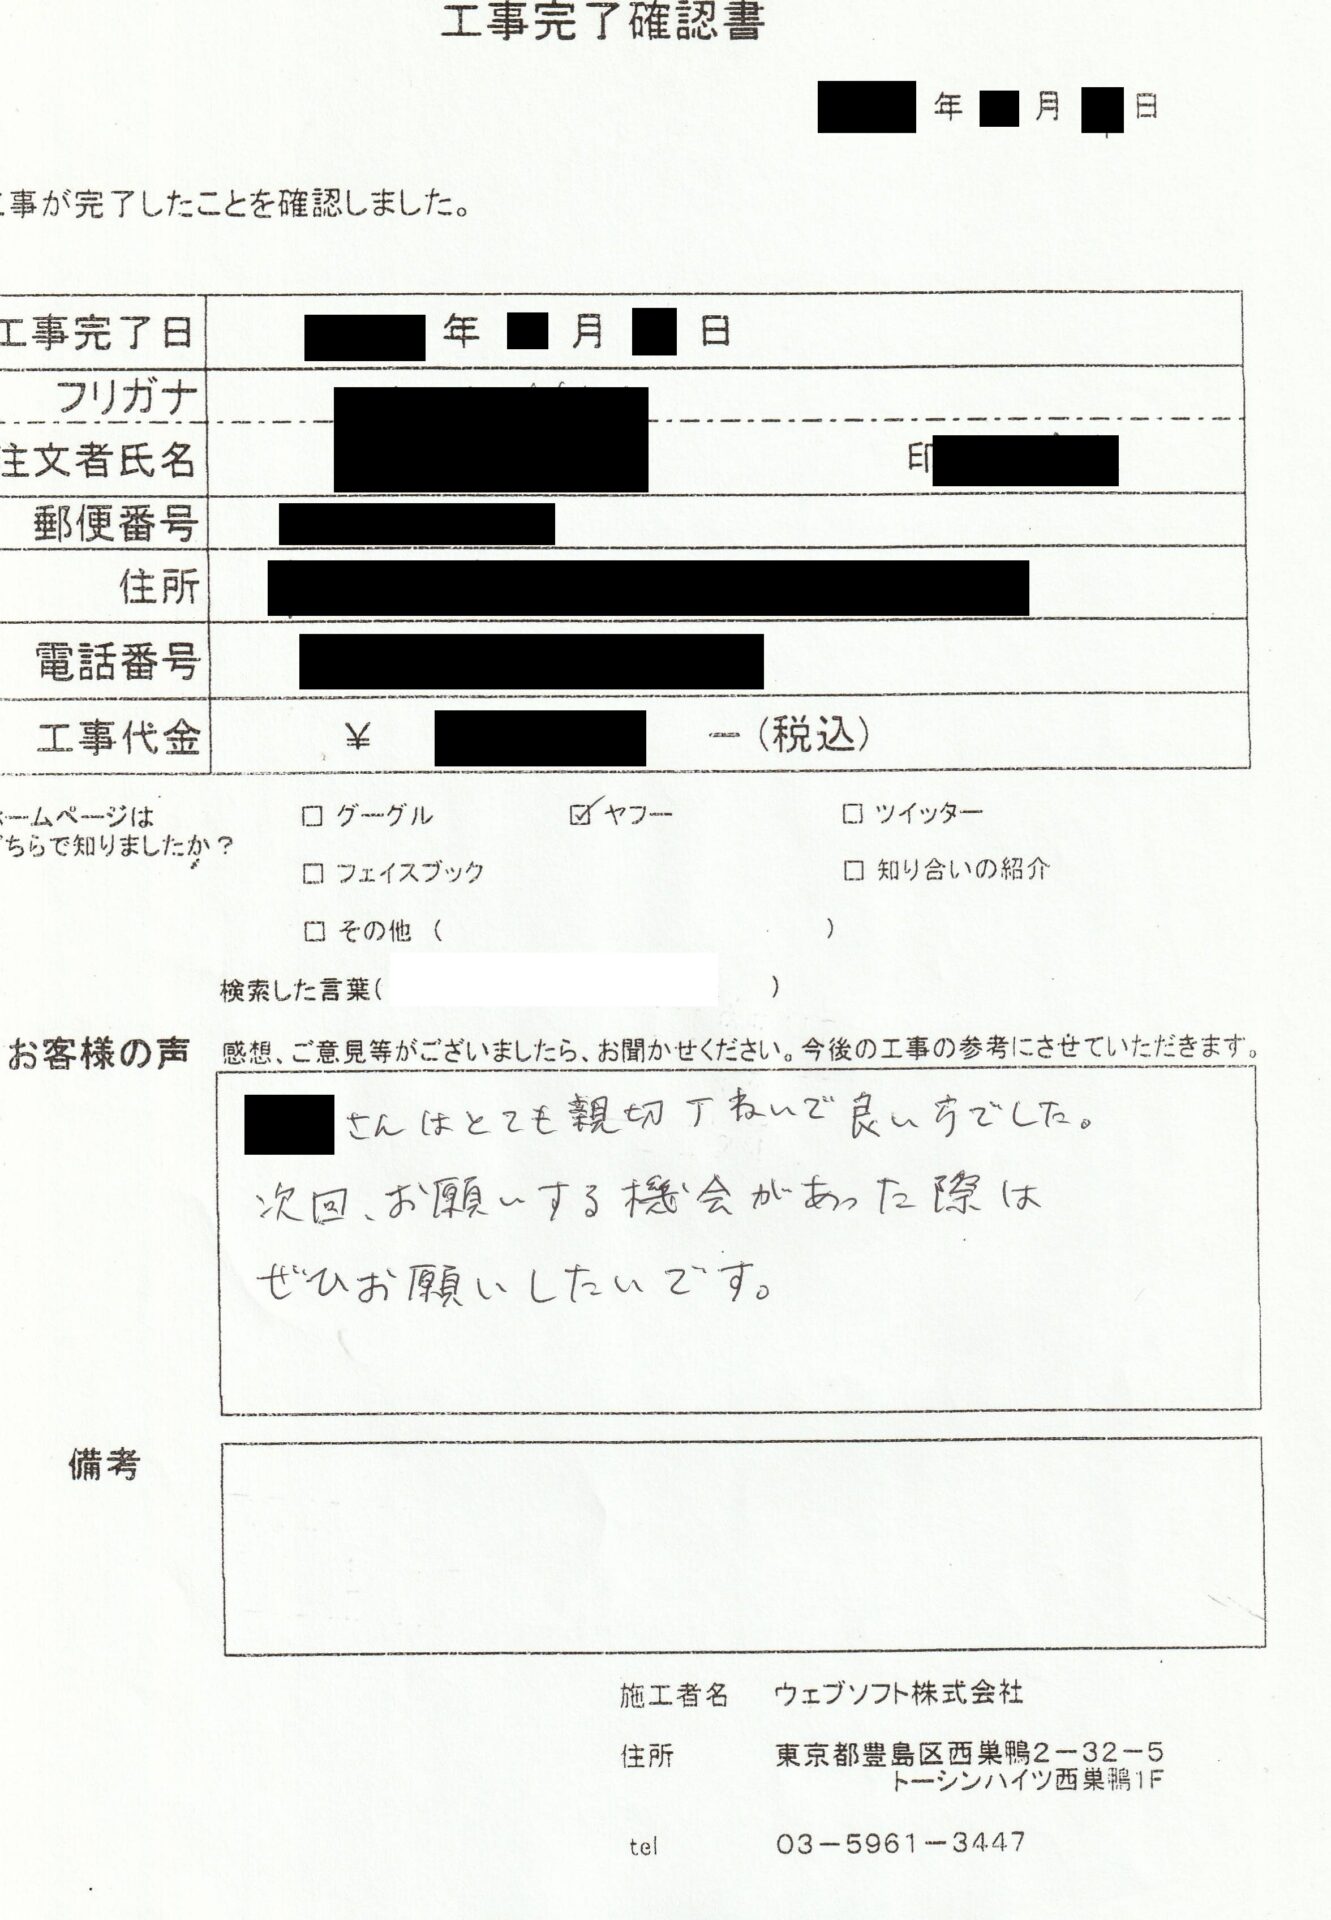 工事完了確認書
年 月 日
工事が完了したことを確認しました。
工事完了日 年 月 日
フリガナ
注文者氏名 印
郵便番号
住所
電話番号
工事代金 ¥ ー(税込)
ホームページは □ グーグル ☑ ヤフー □ ツイッター
どちらで知りましたか?
□ フェイスブック □ 知り合いの紹介
□ その他 ( )
検索した言葉( )
お客様の声 感想、ご意見等がございましたら、お聞かせください。今後の工事の参考にさせていただきます。
さんはとても親切丁ねいで良い方でした。
次回、お願いする機会があった際は
ぜひお願いしたいです。
備考
施工者名 ウェブソフト株式会社
住所 東京都豊島区西巣鴨2-32-5
トーシンハイツ西巣鴨1F
tel 03-5961-3447